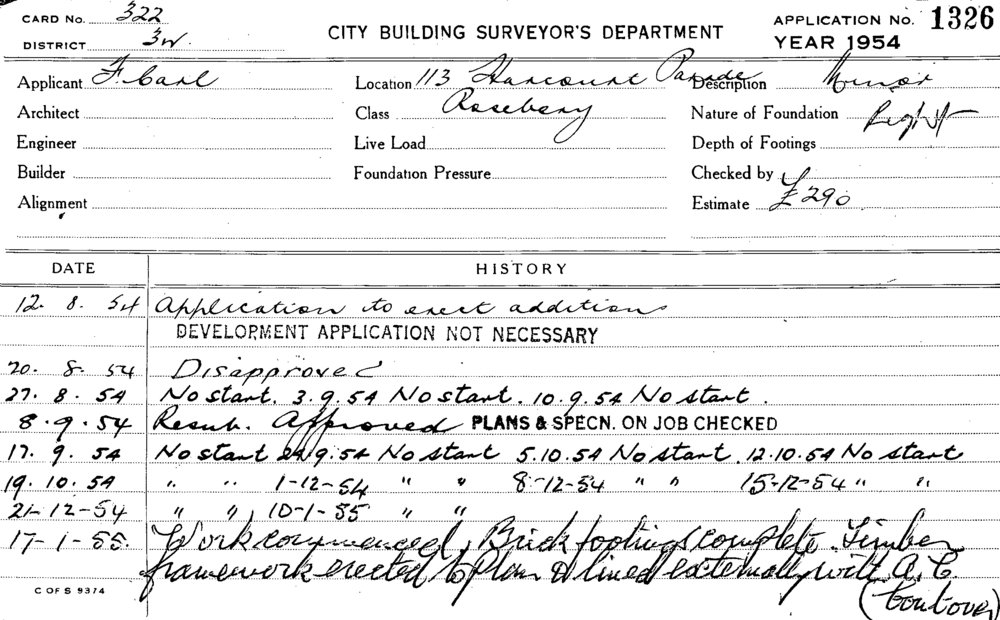 CARD No. 322
DISTRICT 3W.
CITY BUILDING SURVEYOR'S DEPARTMENT
APPLICATION No. 1326
YEAR 1954
Applicant F. Carl
Location 113 Harcourt Parade
Description Minor
Architect
Class Rosebery
Nature of Foundation
Engineer
Live Load
Depth of Footings
Builder
Foundation Pressure
Checked by
Alignment
Estimate £290
DATE HISTORY
12. 8. 54 Application to erect additions
DEVELOPMENT APPLICATION NOT NECESSARY
20. 8. 54 Disapproved
27. 8. 54 No start. 3.9.54 No start. 10.9.54 No start.
8.9.54 Resub. Approved PLANS & SPECN. ON JOB CHECKED
17. 9. 54 No start 24.9.54 No start 5.10.54 No start. 12.10.54 No start
19. 10. 54 " " 1-12-54 " " 8-12-54 " " 15-12-54 " "
21-12-54 " " 10-1-55 " "
17-1-55. Work commenced, Brick footings complete. Timber
framework erected to plan & lined externally with A.C.
(Cont over)
C OF S 9374